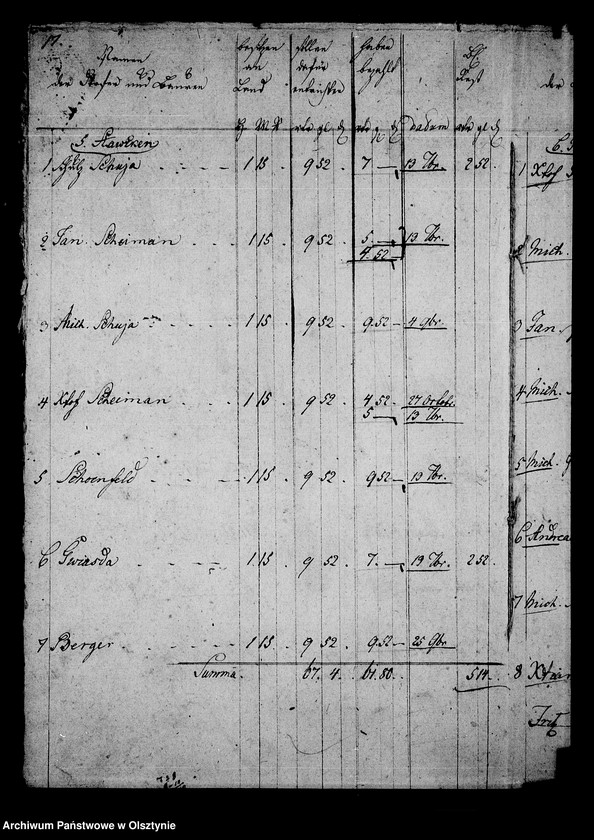 17.
Namen
der Dörfer und Bauern
besitzen an Land
sollen dafür entrichten
haben bezahlt
Rest
H M R
rtlr gl d
rtlr g d
datum
rtlr gl d
5. Stawken
1 Schulz Schuja 1 15 9 52 7 — 13 Xbr. 2 52
2 Jan. Scheiman 1 15 9 52 5. — 13 Xbr.
4. 52
3 Mich. Schuja 1 15 9 52 9. 52 4 9br.
4 Xtof Scheiman 1 15 9 52 4 52. 27 Octob.
5 — 13 Xbr.
5 Schoenfeld 1 15 9 52 9 52 13 Xbr.
6 Gwiasda 1 15 9 52 7. — 19 Xbr. 2 52
7 Berger 1 15 9 52 9. 52 25 9br
Summa. 67. 4. 61. 50. 5 14
1 Xtof
2 Mich.
3 Jan.
4 Mich.
5 Mich.
6 Andrea
7 Mich.
8
Archiwum Państwowe w Olsztynie